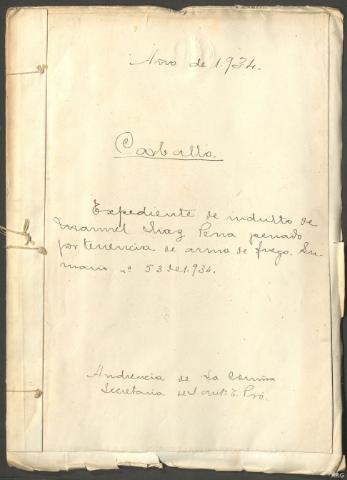 Año de 1.934.
Carballo.
Expediente de indulto de
Manuel Diaz Pena penado
por tenencia de arma de fuego. Su-
mario nº 53 de 1.934.
Audiencia de La Coruña
Secretaria de
ARG